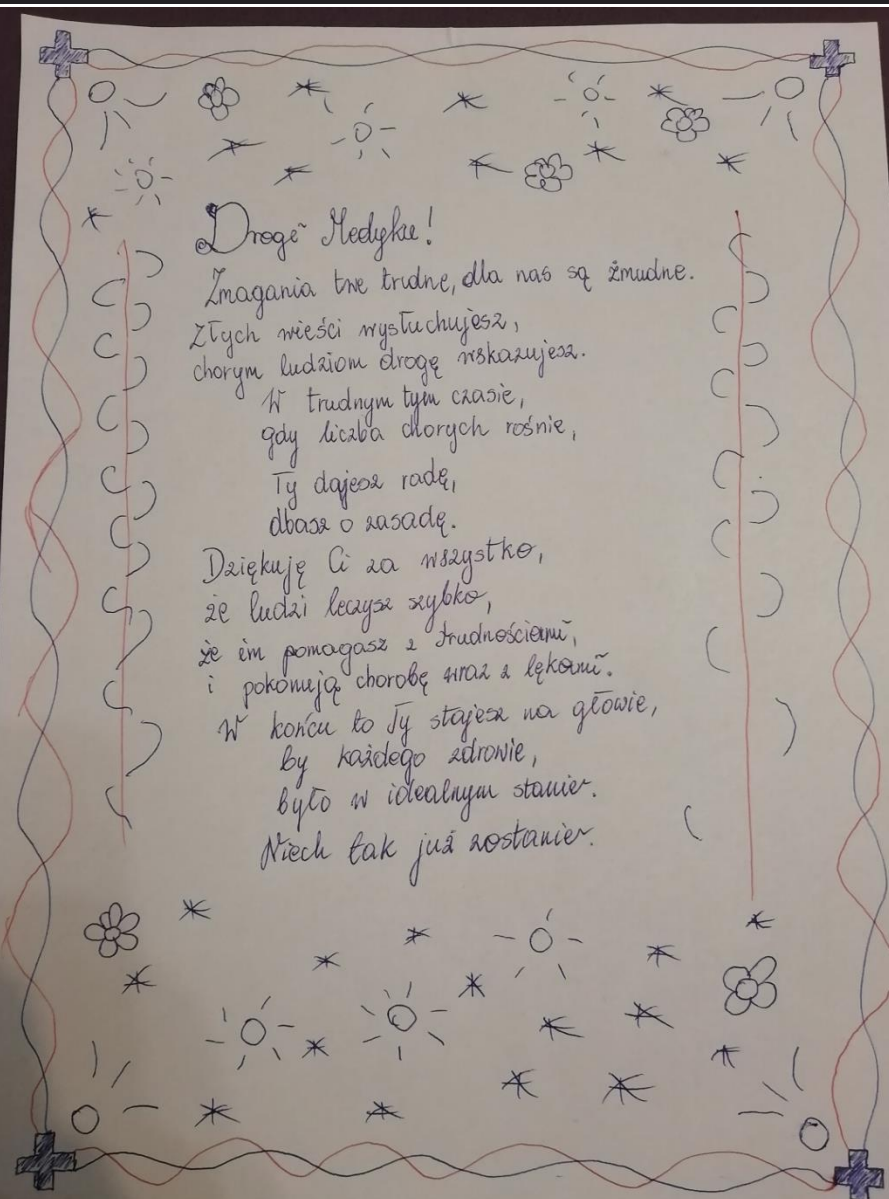 Drogi Medyku!
Zmagania twe trudne, dla nas są żmudne.
Złych wieści wysłuchujesz,
chorym ludziom drogę wskazujesz.
W trudnym tym czasie,
gdy liczba chorych rośnie,
Ty dajesz radę,
dbasz o zasadę.
Dziękuję Ci za wszystko,
że ludzi leczysz szybko,
że im pomagasz z trudnościami,
i pokonują chorobę wraz z lękami.
W końcu to Ty stajesz na głowie,
by każdego zdrowie,
było w idealnym stanie.
Niech tak już zostanie.